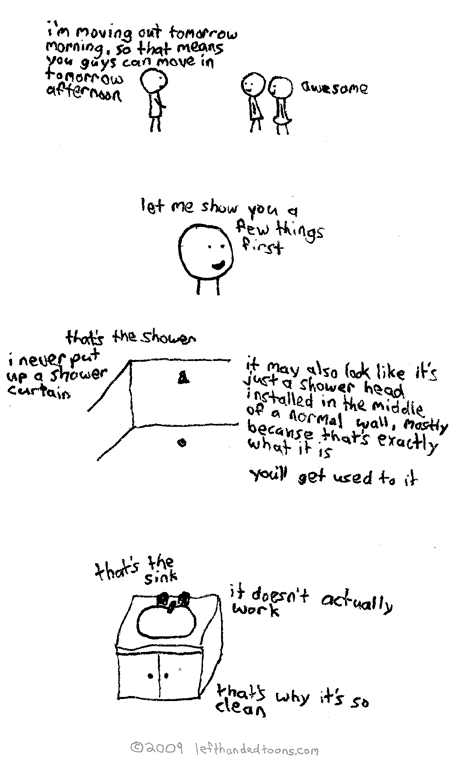 i'm moving out tomorrow
morning, so that means
you guys can move in
tomorrow
afternoon
awesome
let me show you a
few things
first
that's the shower
i never put
up a shower
curtain
it may also look like it's
just a shower head
installed in the middle
of a normal wall, mostly
because that's exactly
what it is
you'll get used to it
that's the
sink
it doesn't actually
work
that's why it's so
clean
©2009 lefthandedtoons.com